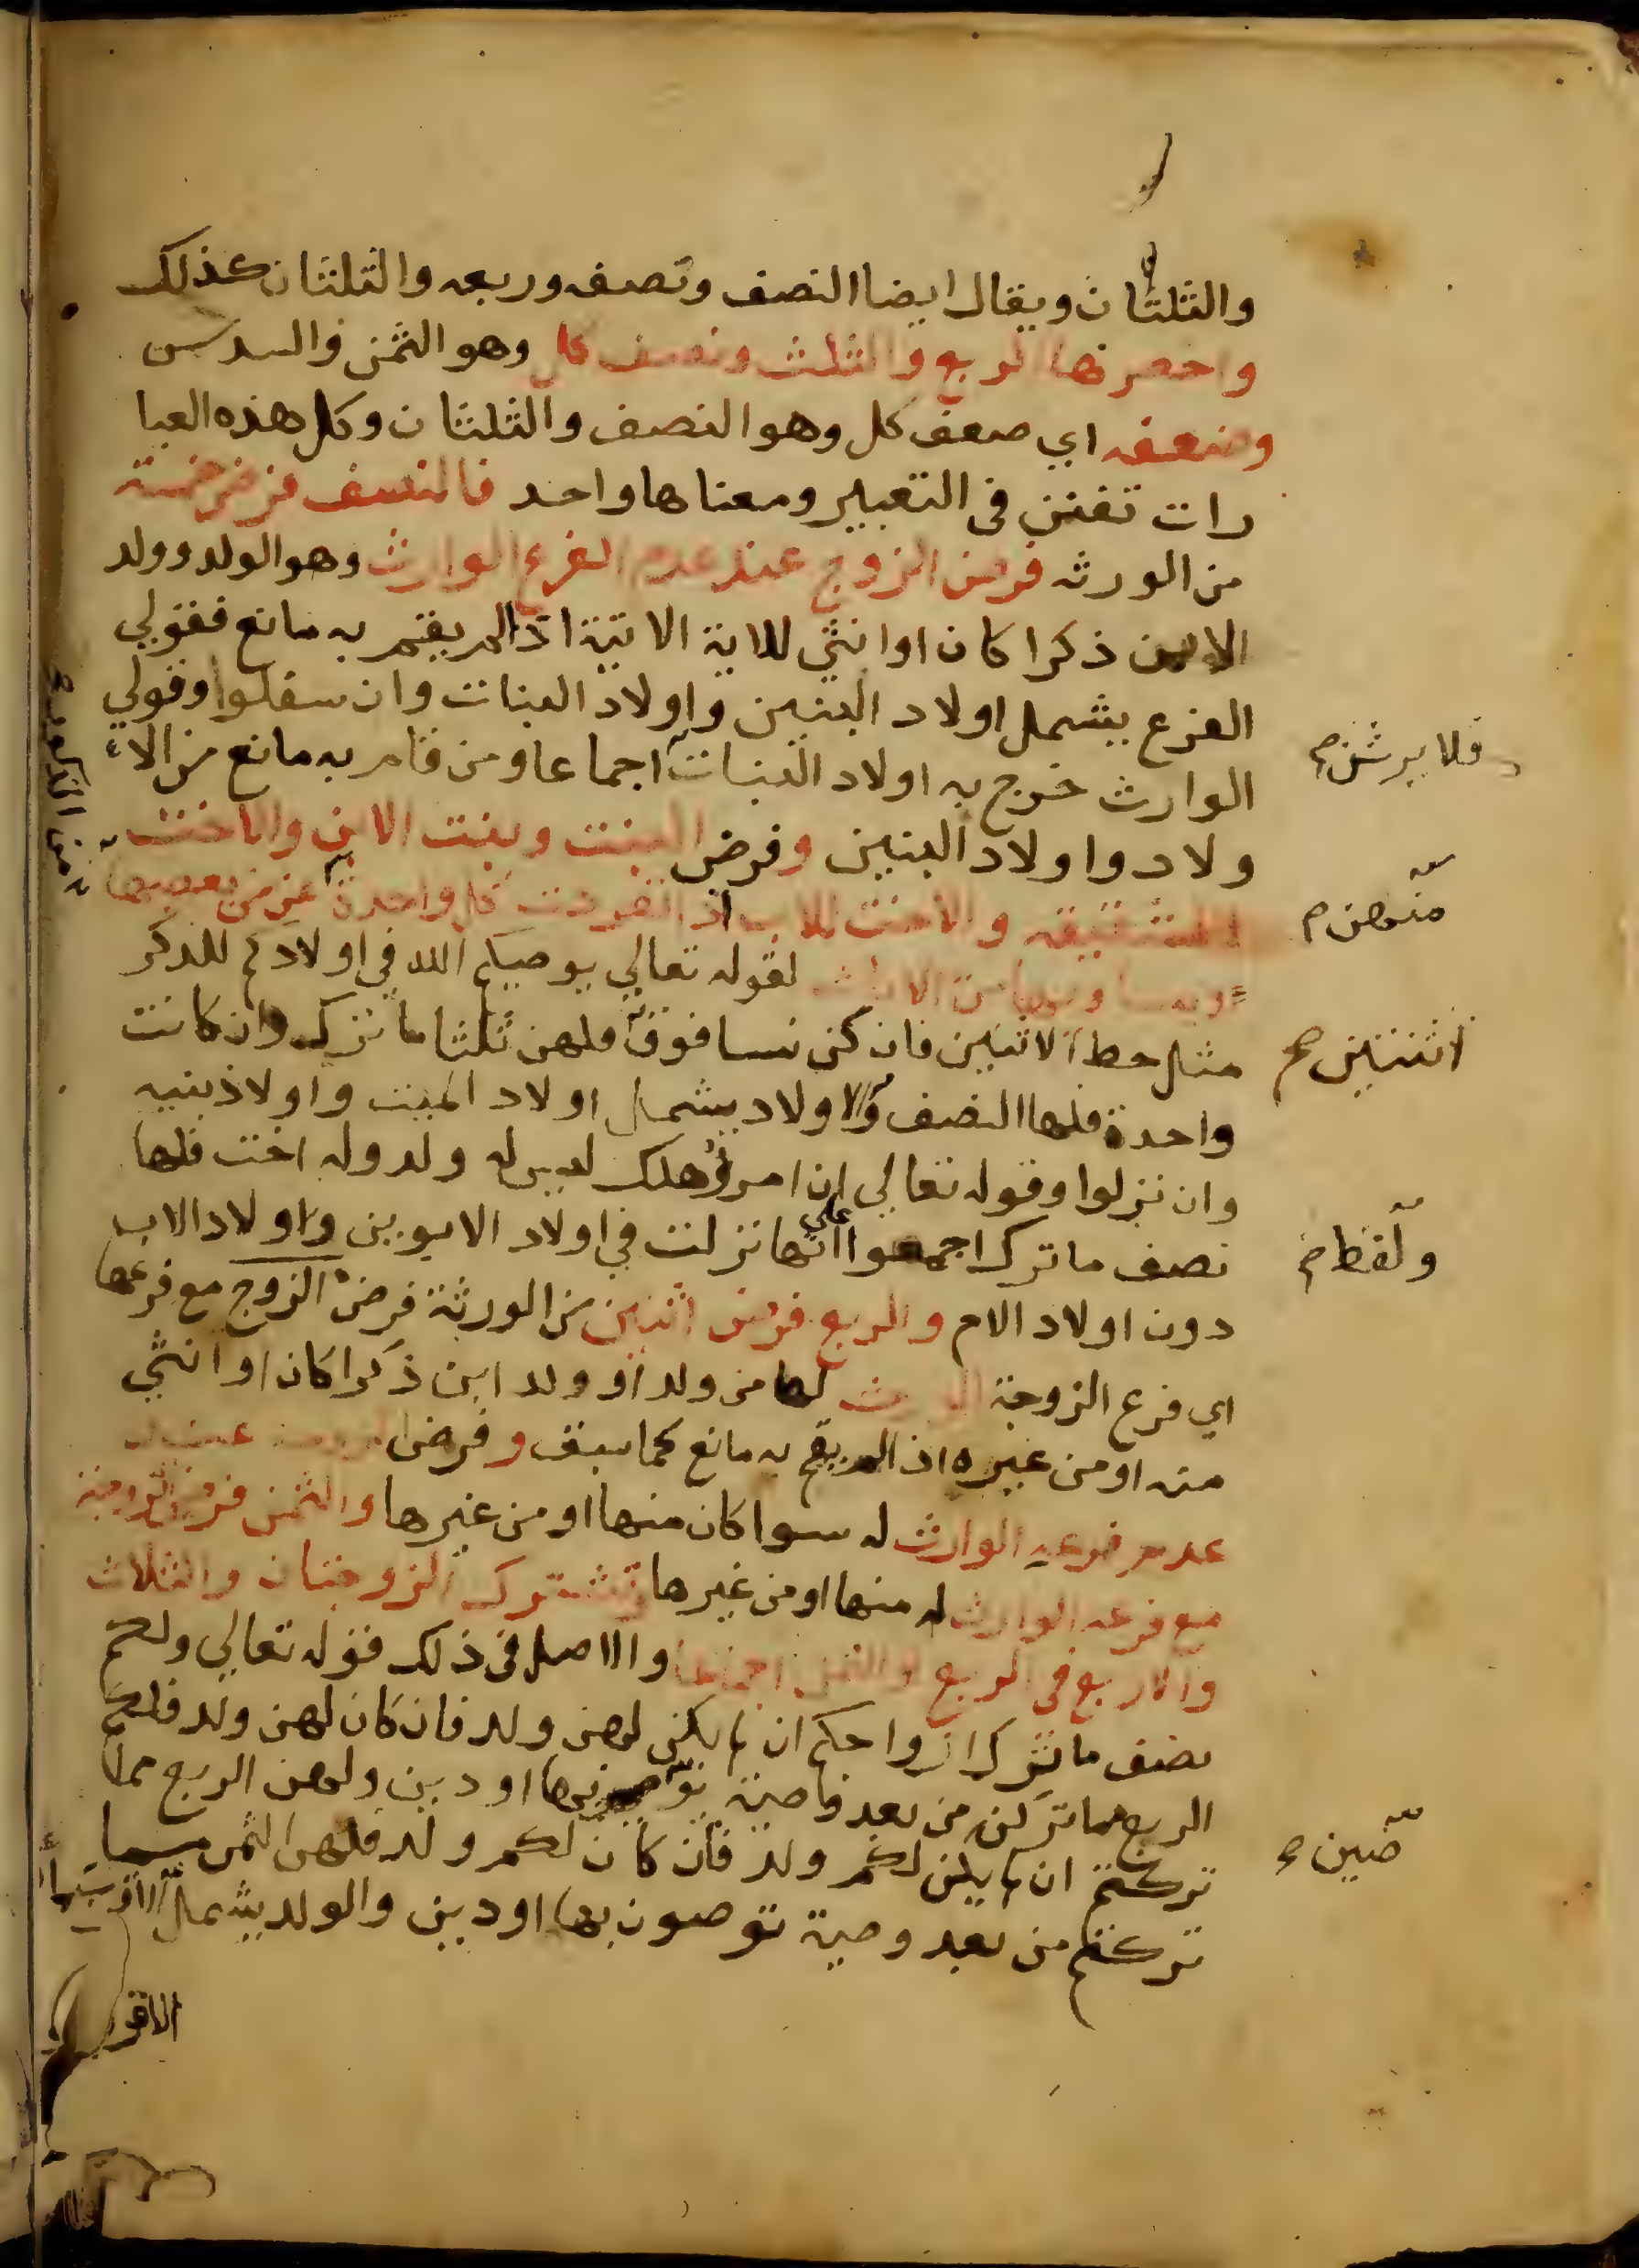 والثلثان ويقال ايضا النصف ونصفه وربعه والثلثان كذلك
واخصرها الربع والثلث ونصف كل وهو الثمن والسدس
وضعفه اي ضعف كل وهو النصف والثلثان وكل هذه العبا
رات تفنن في التعبير ومعناها واحد فالنصف فرض خمسة
من الورثه فرض الزوج عند عدم الفرع الوارث وهو الولد وولد
الابن ذكرا كان او انثي للاية الاتية اذا لم يقم به مانع فقولي
الفرع يشمل اولاد البنين واولاد البنات وان سفلوا وقولي
الوارث خرج به اولاد البنات اجماعا ومن قام به مانع من الا
فلا يرثن صح
ولاد واولاد البنين وفرض البنت وبنت الابن والاخت
الشقيقه والاخت للاب اذا انفردت كل واحدة عن من يعصبها
منهن صح
من الذكور صح
او يساويها من الاناث لقوله تعالي يوصيكم الله في اولادكم للذكر
مثل حظ الانثيين فان كن نسا فوق فلهن ثلثا ما ترك وان كانت
اثنتين صح
واحدة فلها النصف والاولاد يشمل اولاد الميت واولاد بنيه
وان نزلوا وقوله تعالي ان امرؤ هلك ليس له ولد وله اخت فلها
نصف ما ترك اجمعوا علي انها نزلت في اولاد الابوين واولاد الاب
ولفظ صح
دون اولاد الام والربع فرض اثنين من الورثة فرض الزوج مع فرعها
اي فرع الزوجة الوارث لها من ولد او ولد ابن ذكرا كان او انثي
منه او من غيره اذا لم يقم به مانع كما سبق وفرض الزوجة عند
عدم فرعه الوارث له سوا كان منها او من غيرها والثمن فرض الزوجة
مع فرعه الوارث له منها او من غيرها وتشترك الزوجتان والثلاث
والاربع في الربع والثمن اجماعا والاصل في ذلك قوله تعالي ولكم
نصف ما ترك ازواجكم ان لم يكن لهن ولد فان كان لهن ولد فلكم
الربع مما تركن من بعد وصية يو بها او دين ولهن الربع مما
صين صح
تركتم ان لم يكن لكم ولد فان كان لكم ولد فلهن الثمن مما
تركتم من بعد وصية توصون بها او دين والولد يشمل
الاقر